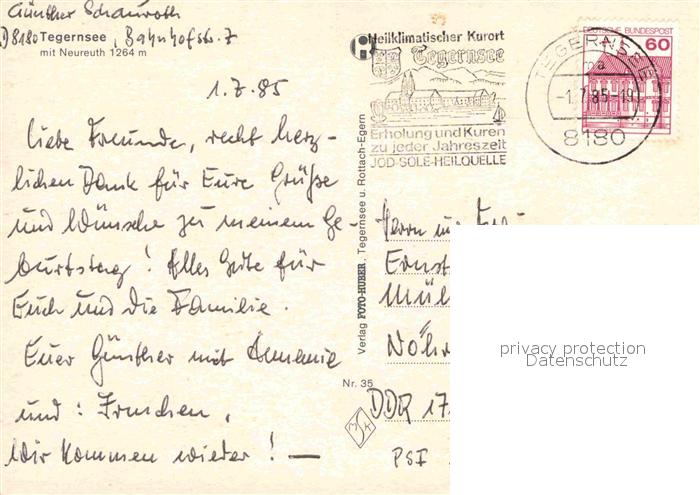 Günther Schauroth
D 8180 Tegernsee, Bahnhofstr. 7
mit Neureuth 1264 m
1.7.85
Liebe Freunde, recht herz-
lichen Dank für Eure Grüße
und Wünsche zu meinem Ge-
burtstag! Alles Gute für
Euch und die Familie.
Euer Günther mit
und:
Wir kommen wieder! —
Heilklimatischer Kurort
Tegernsee
Erholung und Kuren
zu jeder Jahreszeit
JOD-SOLE-HEILQUELLE
TEGERNSEE
-1.7.85-19
8180
DEUTSCHE BUNDESPOST
60
Verlag FOTO-HUBER, Tegernsee u. Rottach-Egern
Nr. 35
MSK
Herrn und
Ernst
DDR 17
PSF
privacy protection
Datenschutz